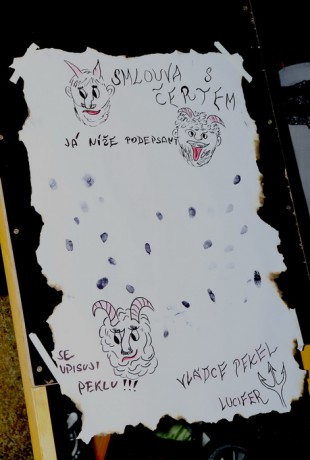 SMLOUVA S
ČERTEM
JÁ NÍŽE PODEPSANÝ
SE
UPISUJI
PEKLU!!!
VLÁDCE PEKEL
LUCIFER